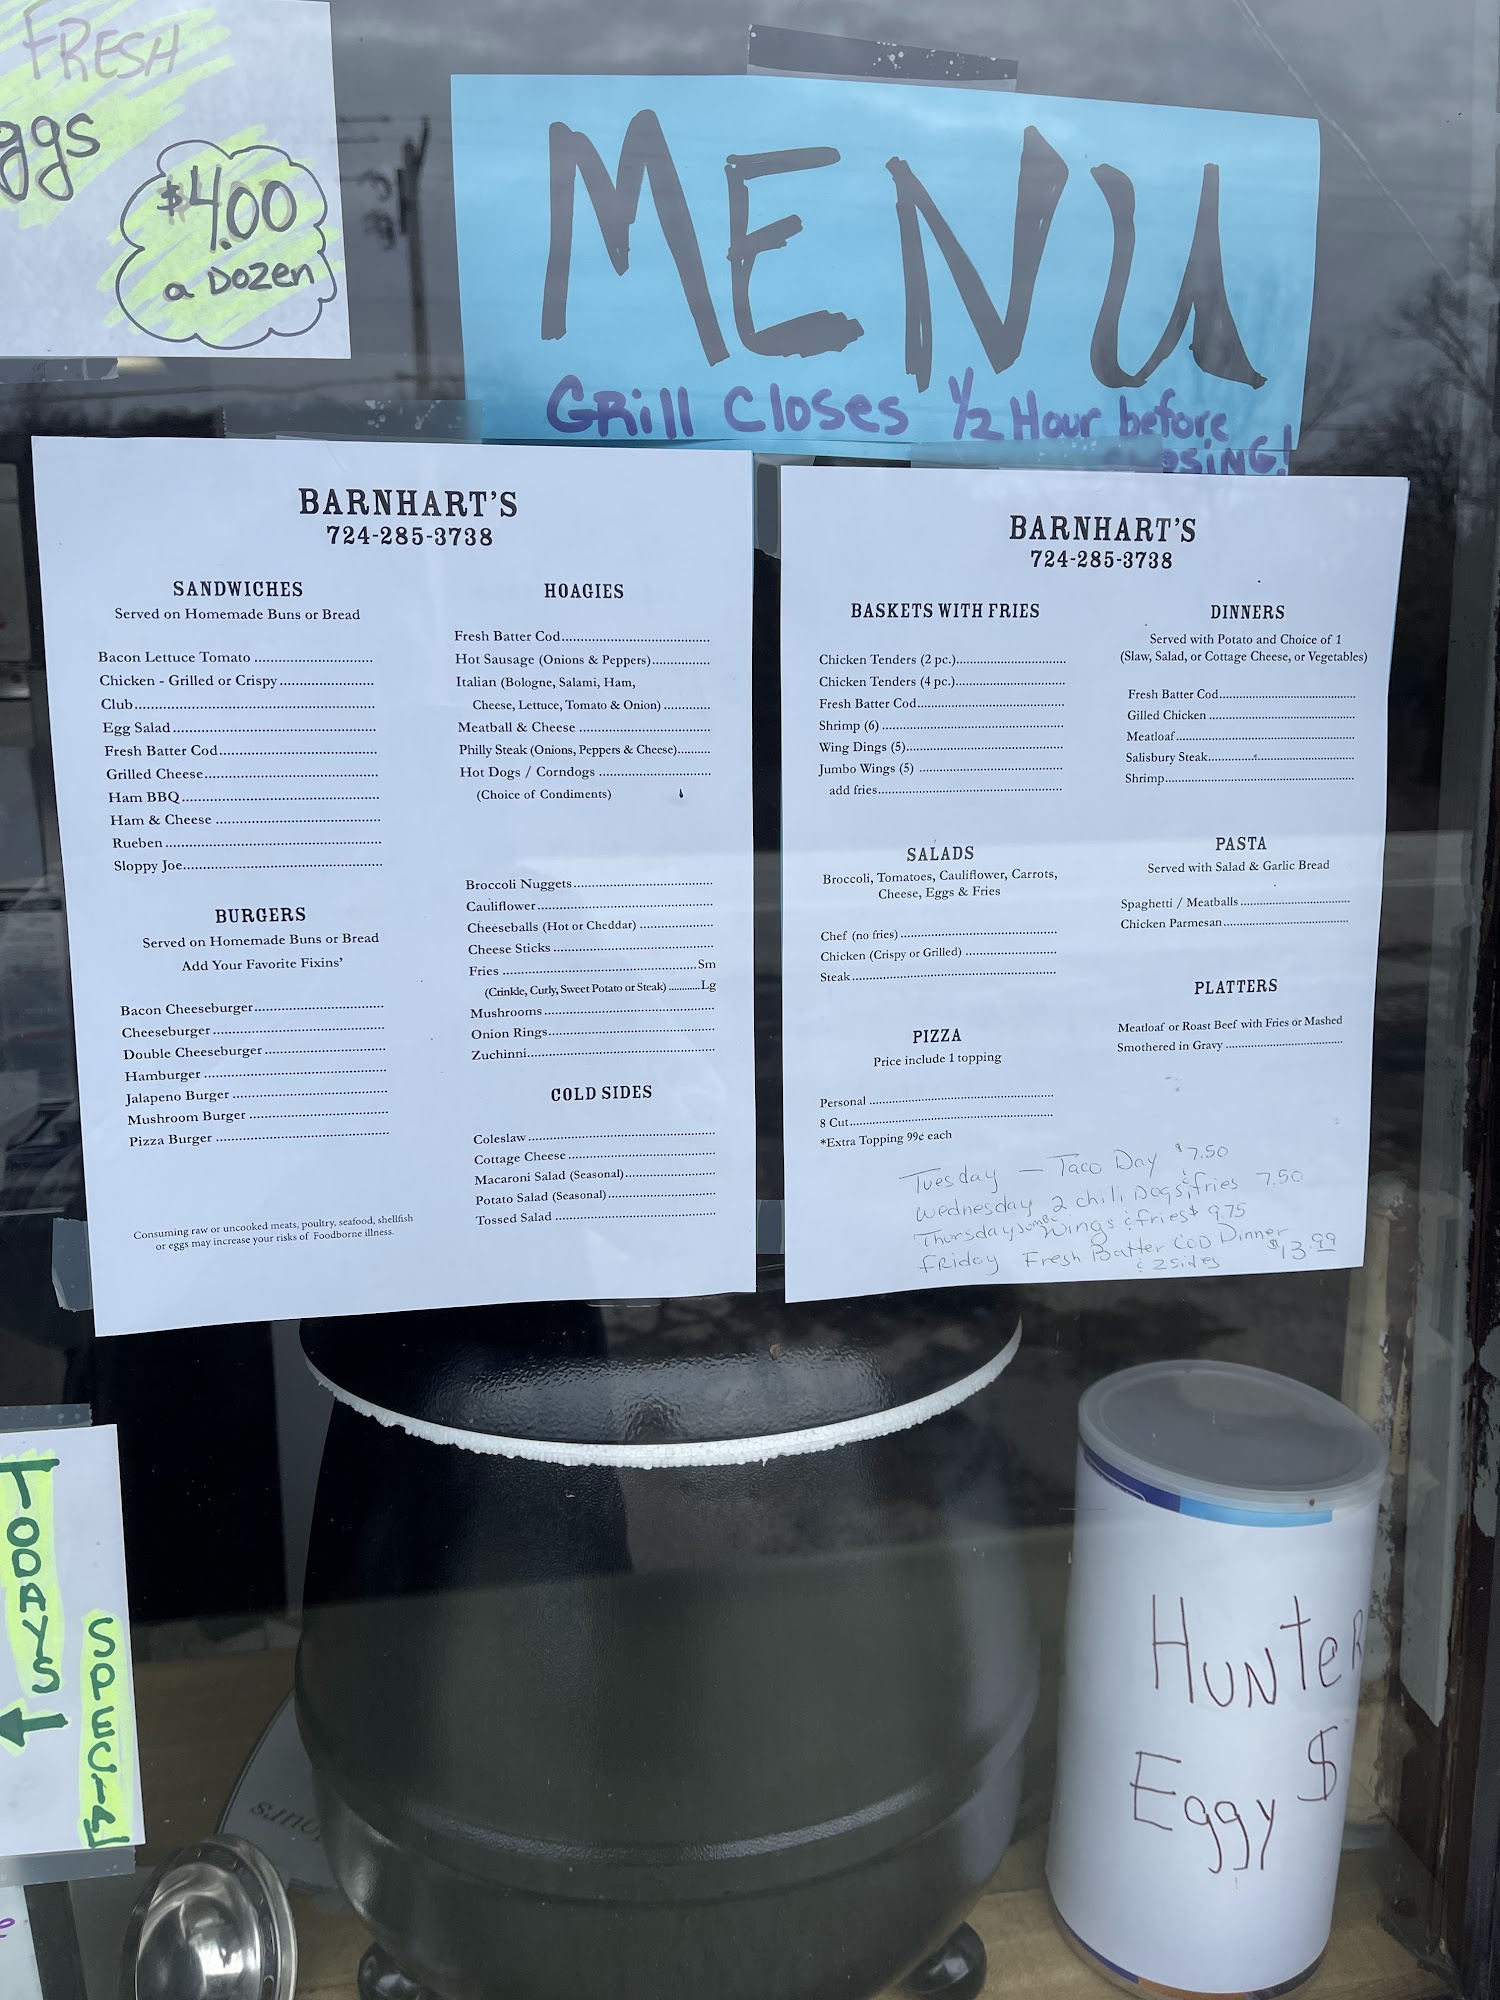 FRESH
ggs
$4.00
a Dozen
MENU
Grill Closes 1/2 Hour before
OSING!
BARNHART'S
724-285-3738
SANDWICHES
Served on Homemade Buns or Bread
Bacon Lettuce Tomato
Chicken - Grilled or Crispy
Club
Egg Salad
Fresh Batter Cod
Grilled Cheese
Ham BBQ
Ham & Cheese
Rueben
Sloppy Joe
BURGERS
Served on Homemade Buns or Bread
Add Your Favorite Fixins'
Bacon Cheeseburger
Cheeseburger
Double Cheeseburger
Hamburger
Jalapeno Burger
Mushroom Burger
Pizza Burger
Consuming raw or uncooked meats, poultry, seafood, shellfish
or eggs may increase your risks of Foodborne illness.
HOAGIES
Fresh Batter Cod
Hot Sausage (Onions & Peppers)
Italian (Bologne, Salami, Ham,
Cheese, Lettuce, Tomato & Onion)
Meatball & Cheese
Philly Steak (Onions, Peppers & Cheese)
Hot Dogs / Corndogs
(Choice of Condiments)
Broccoli Nuggets
Cauliflower
Cheeseballs (Hot or Cheddar)
Cheese Sticks
Fries Sm
(Crinkle, Curly, Sweet Potato or Steak) Lg
Mushrooms
Onion Rings
Zuchinni
COLD SIDES
Coleslaw
Cottage Cheese
Macaroni Salad (Seasonal)
Potato Salad (Seasonal)
Tossed Salad
BARNHART'S
724-285-3738
BASKETS WITH FRIES
Chicken Tenders (2 pc.)
Chicken Tenders (4 pc.)
Fresh Batter Cod
Shrimp (6)
Wing Dings (5)
Jumbo Wings (5)
add fries
SALADS
Broccoli, Tomatoes, Cauliflower, Carrots,
Cheese, Eggs & Fries
Chef (no fries)
Chicken (Crispy or Grilled)
Steak
PIZZA
Price include 1 topping
Personal
8 Cut
*Extra Topping 99¢ each
DINNERS
Served with Potato and Choice of 1
(Slaw, Salad, or Cottage Cheese, or Vegetables)
Fresh Batter Cod
Gilled Chicken
Meatloaf
Salisbury Steak
Shrimp
PASTA
Served with Salad & Garlic Bread
Spaghetti / Meatballs
Chicken Parmesan
PLATTERS
Meatloaf or Roast Beef with Fries or Mashed
Smothered in Gravy
Tuesday — Taco Day $7.50
Wednesday 2 chili Dogs & fries 7.50
Thursday Jumbo Wings & fries $9.75
Friday Fresh Batter COD Dinner
& 2 sides $13.99
TODAYS
SPECIAL
Hunter
Eggy $